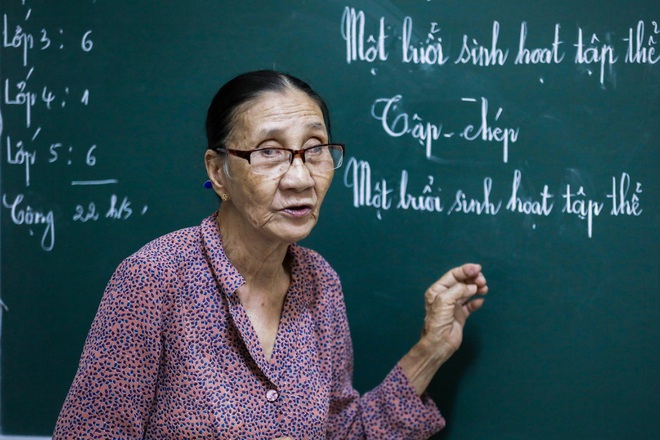 Lớp 3 : 6
Lớp 4 : 1
Lớp 5 : 6
Cộng 22 h/s,
Một buổi sinh hoạt tập thể
Tập-chép
Một buổi sinh hoạt tập thể